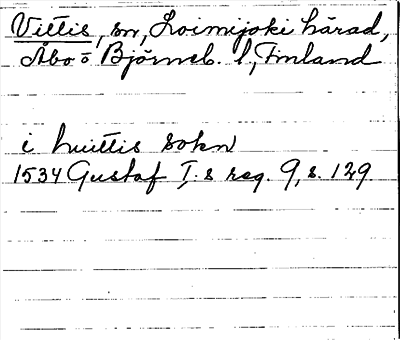 Vittis, sn, Loimijoki härad,
Åbo o Björneb. l, Finland
i huittis sokn
1534 Gustaf I.s reg. 9, s. 129.